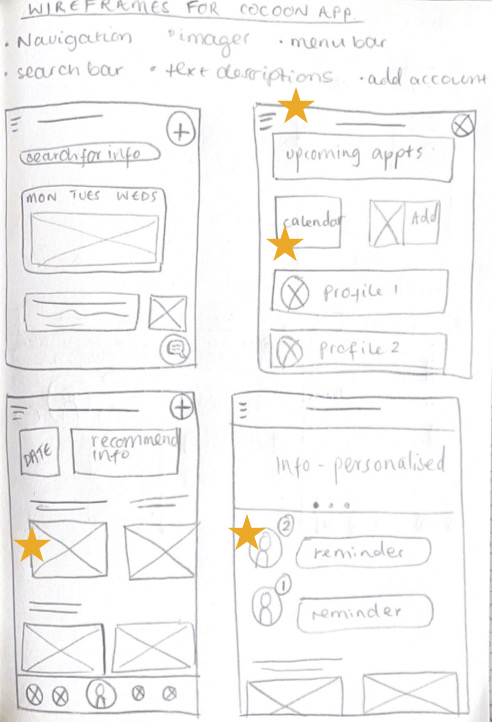 WIREFRAMES FOR COCOON APP
• Navigation • images • menu bar
• search bar • text descriptions • add account
search for info
MON TUES WEDS
upcoming appts
calendar
Add
Profile 1
Profile 2
DATE
recommend
info
Info - personalised
2
reminder
1
reminder